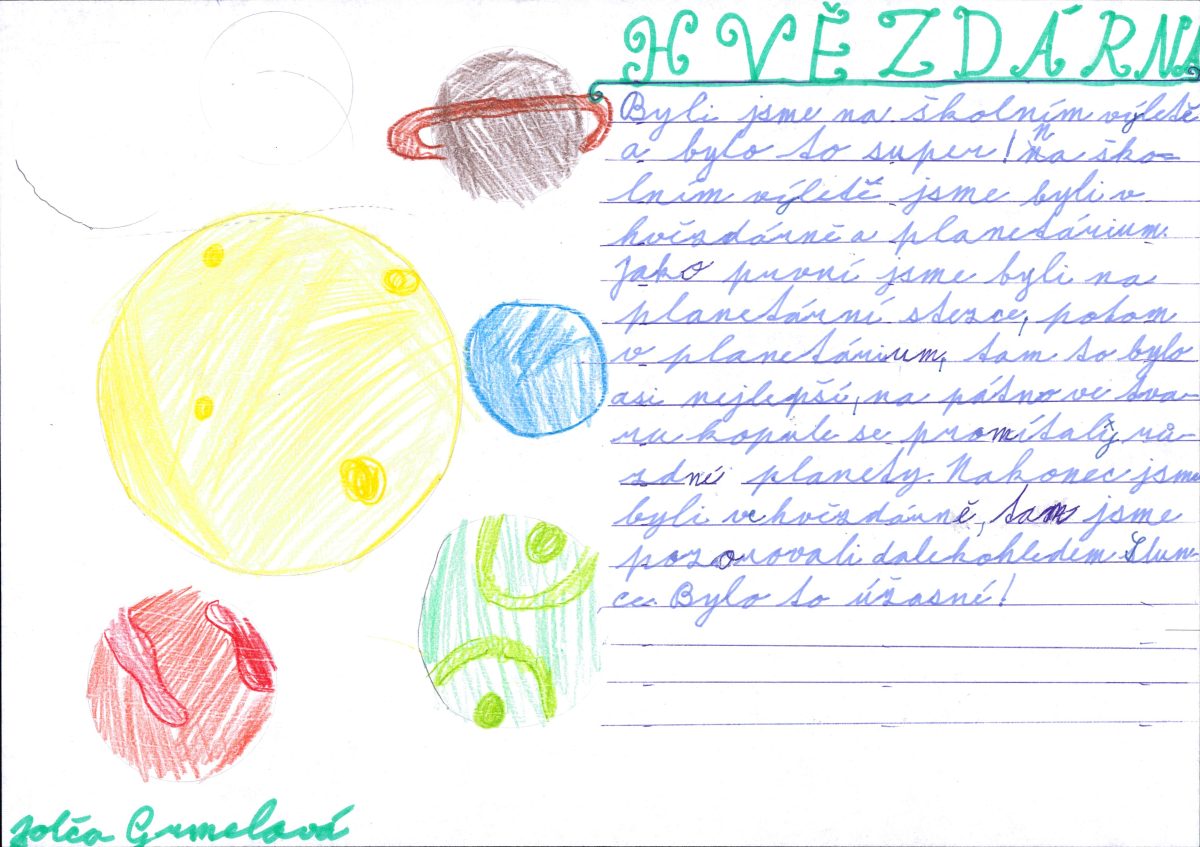 HVĚZDÁRNA
Byli jsme na školním výletě
a bylo to super! Na ško-
lním výletě jsme byli v
hvězdárně a planetárium.
Jako první jsme byli na
planetární stezce, potom
v planetárium, tam to bylo
asi nejlepší, na plátno ve tva-
ru kopule se promítaly rů-
zdné planety. Nakonec jsme
byli ve hvězdárně, tam jsme
pozorovali dalekohledem Slun-
ce. Bylo to úžasné!
Grmelová